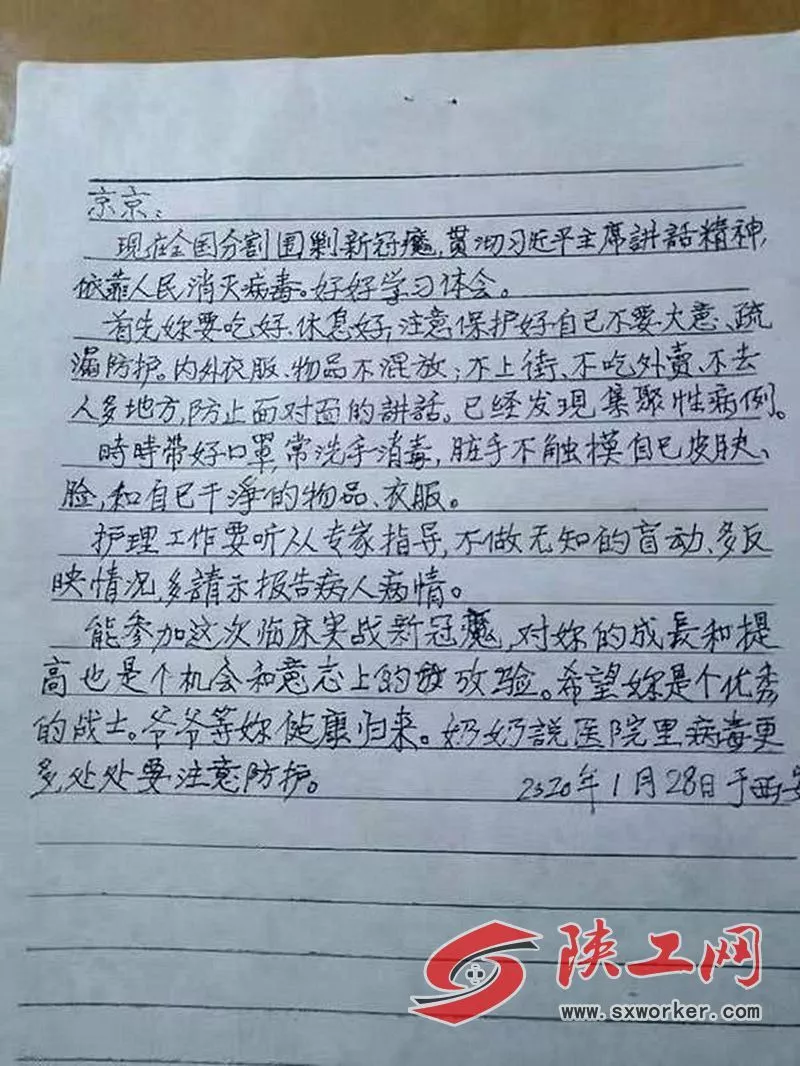 京京：
现在全国分割围剿新冠魔，贯彻习近平主席讲话精神，
依靠人民消灭病毒。好好学习体会。
首先妳要吃好、休息好，注意保护好自己不要大意、疏
漏防护。内外衣服、物品不混放；不上街、不吃外賣、不去
人多地方，防止面对面的讲话。已经发现集聚性病例。
時時带好口罩，常洗手消毒，脏手不触摸自己皮肤、
脸，和自己干净的物品、衣服。
护理工作要听从专家指导，不做无知的盲动、多反
映情况，多請示报告病人病情。
能参加这次临床实战新冠魔，对妳的成長和提
高也是个机会和意志上的攷验。希望妳是个优秀
的战士。爷爷等妳健康归来。奶奶説医院里病毒更
多，处处要注意防护。
2020年1月28日于西安
陕工网
www.sxworker.com